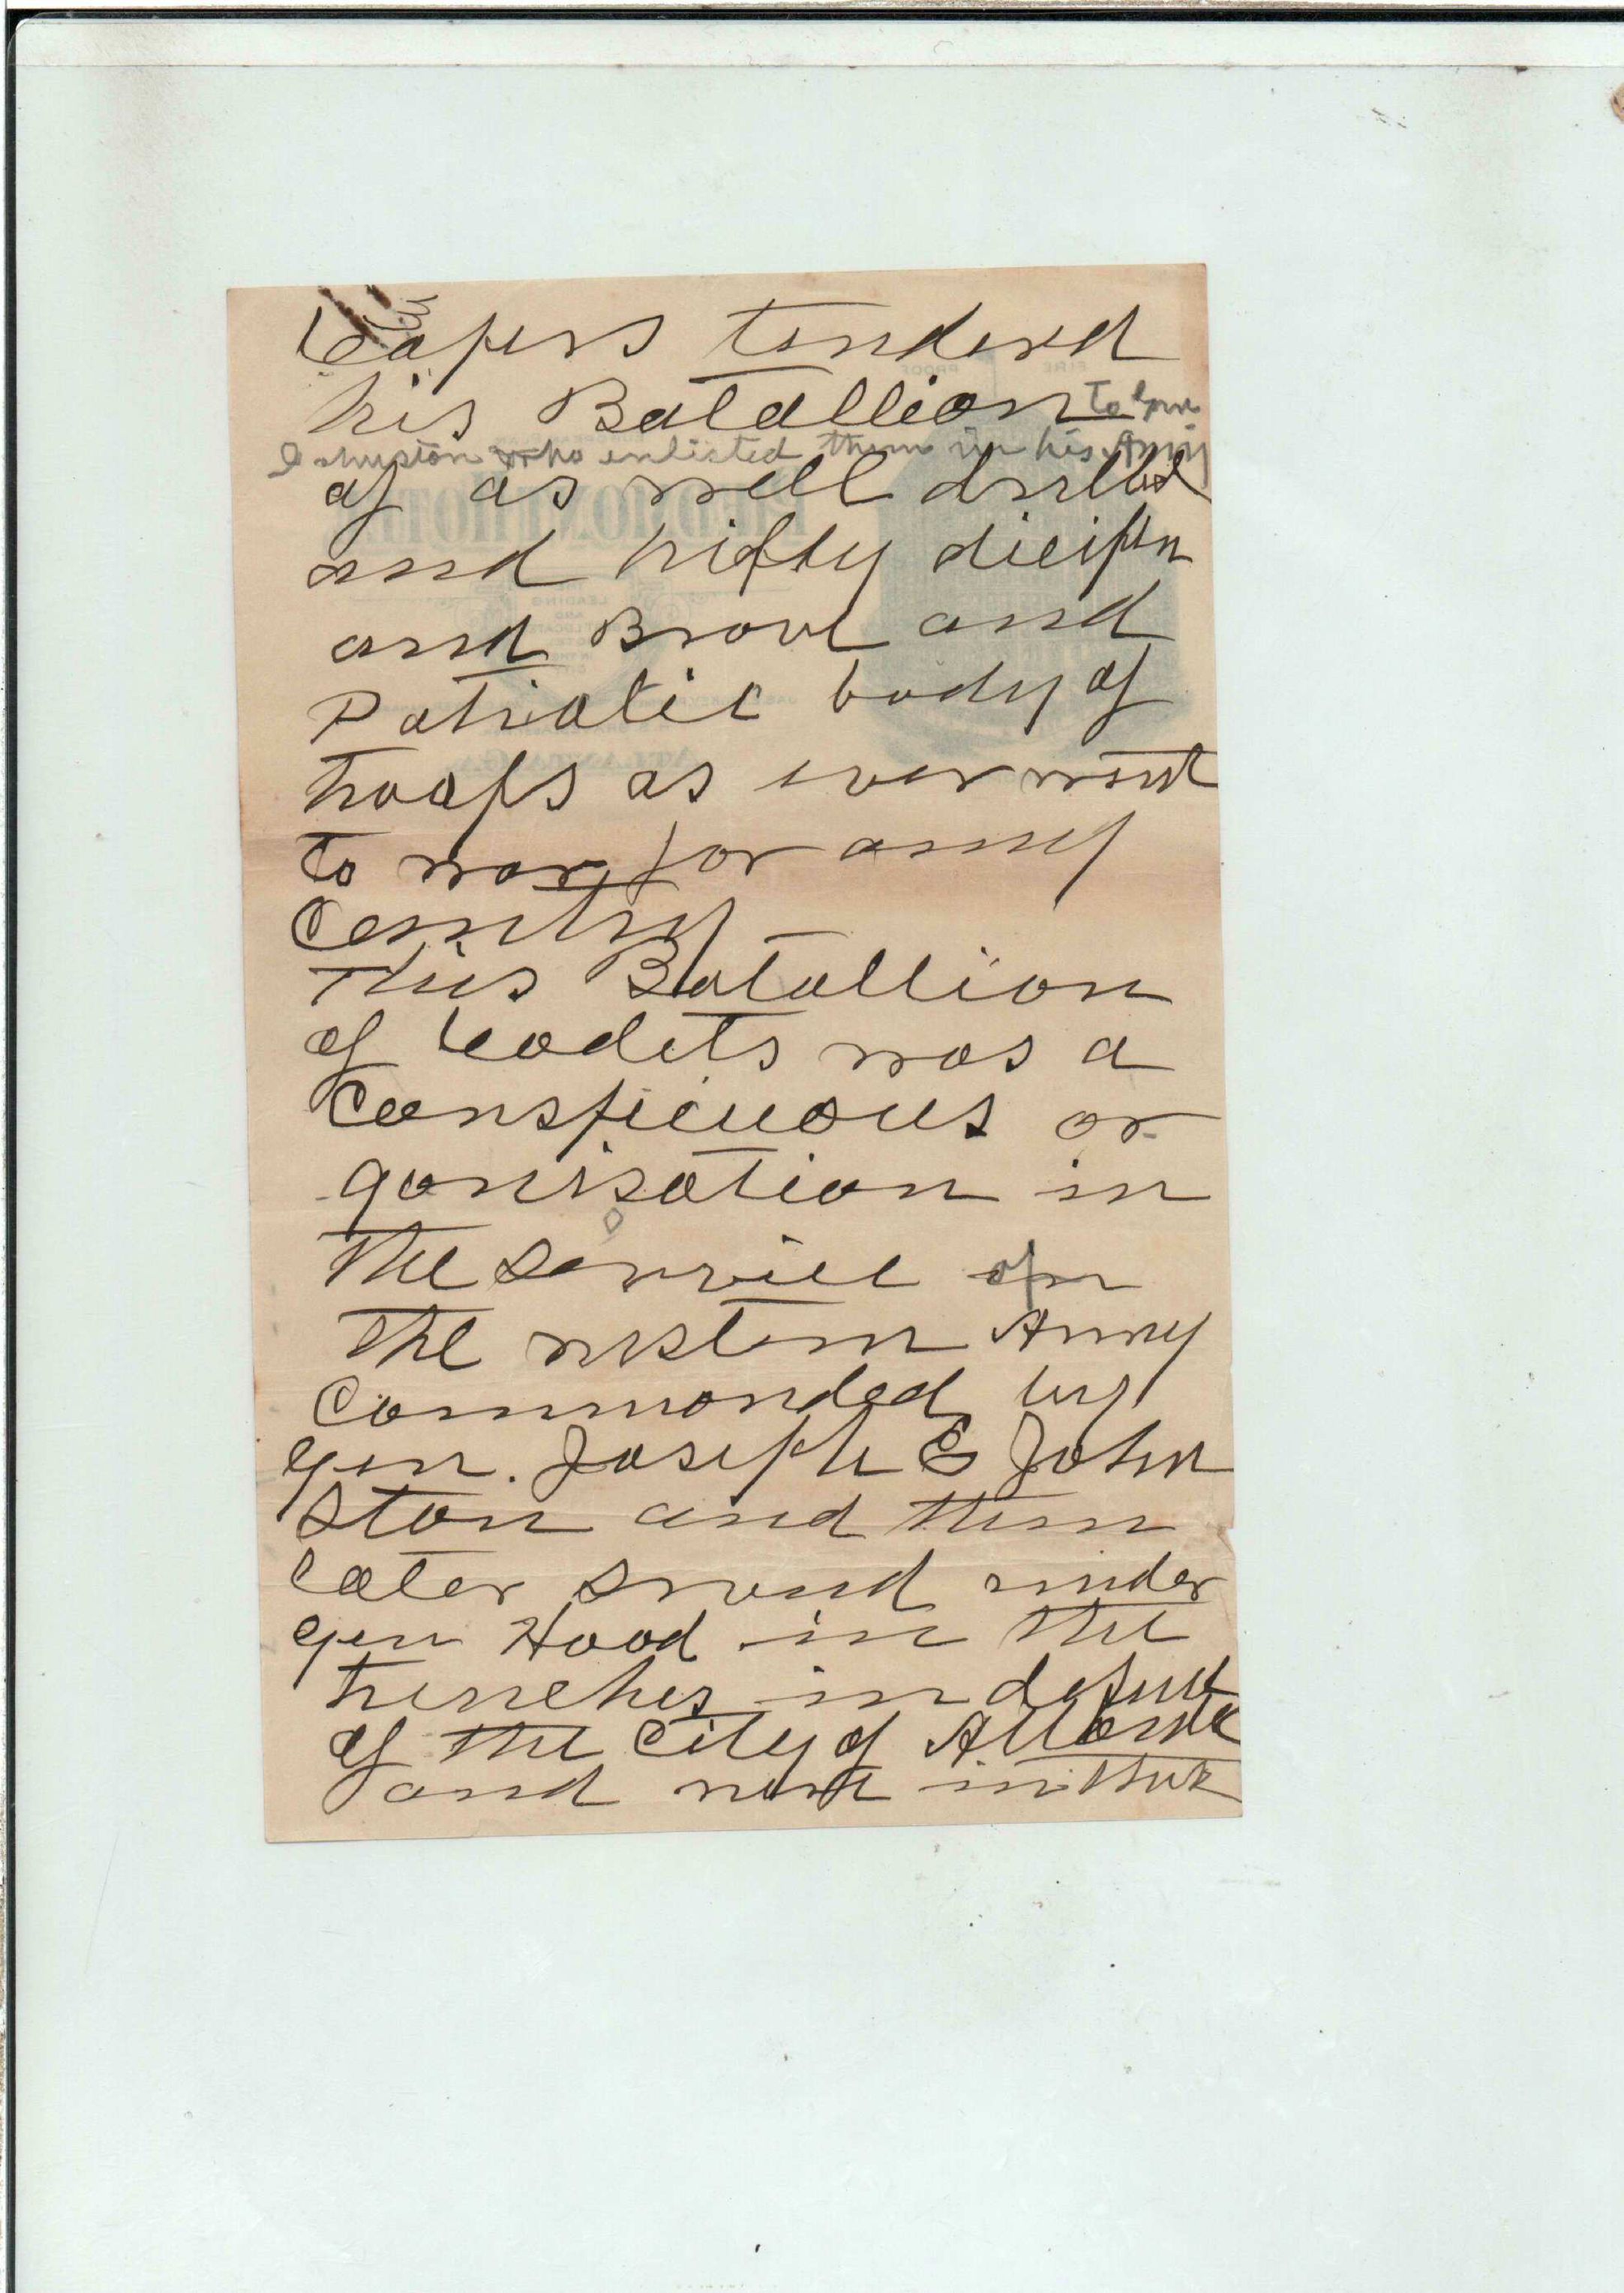 Capers tenderd
his Batallion to Gen
Johnston who enlisted them in his Army
of as well drilled
and hifty
and Brave and
Patriotic body of
troops as ever went
to war for anny
Country
This Batallion
of Cadets was a
Conspicuous or
ganisation in
The Service of
The western Army
Commanded by
Gen. Joseph E John
ston and then
later served under
Gen Hood in the
trenches in defence
of the City of Atlanta
and went in